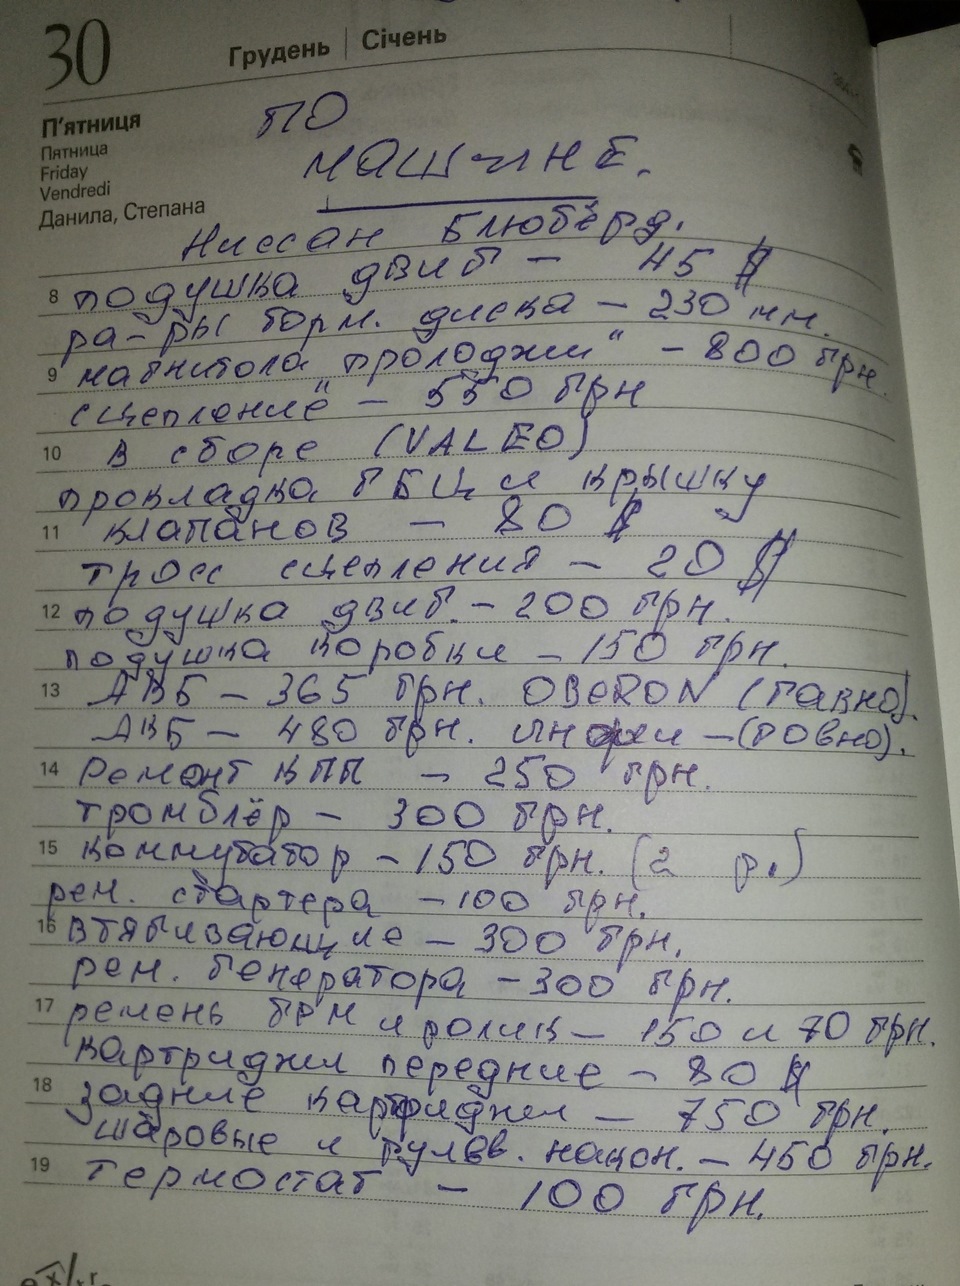 30
Грудень | Січень
П'ятниця
Пятница
Friday
Vendredi
Данила, Степана
ПО
МАШИНЕ.
Ниссан Блюбёрд.
8 подушка двиг – 45 $
ра-ры торм. диска – 230 мм.
9 магнитола "пролоджи" – 800 грн.
сцепление – 550 грн
10 в сборе (VALEO)
прокладка ГБЦ и крышку
11 клапанов – 80 $
тросс сцепления – 20 $
12 подушка двиг. – 200 грн.
подушка коробки – 150 грн.
13 АКБ – 365 грн. OBERON (гавно).
АКБ – 480 грн. – (говно).
14 Ремонт КПП – 250 грн.
тромблёр – 300 грн.
15 коммутатор – 150 грн. (2 р.)
рем. стартера – 100 грн.
16 втягивающие – 300 грн.
рем. генератора – 300 грн.
17 ремень ГРМ и ролик – 150 и 70 грн.
картриджи передние – 80 $
18 задние картриджи – 750 грн.
шаровые и рулев. након. – 450 грн.
19 термостат – 100 грн.